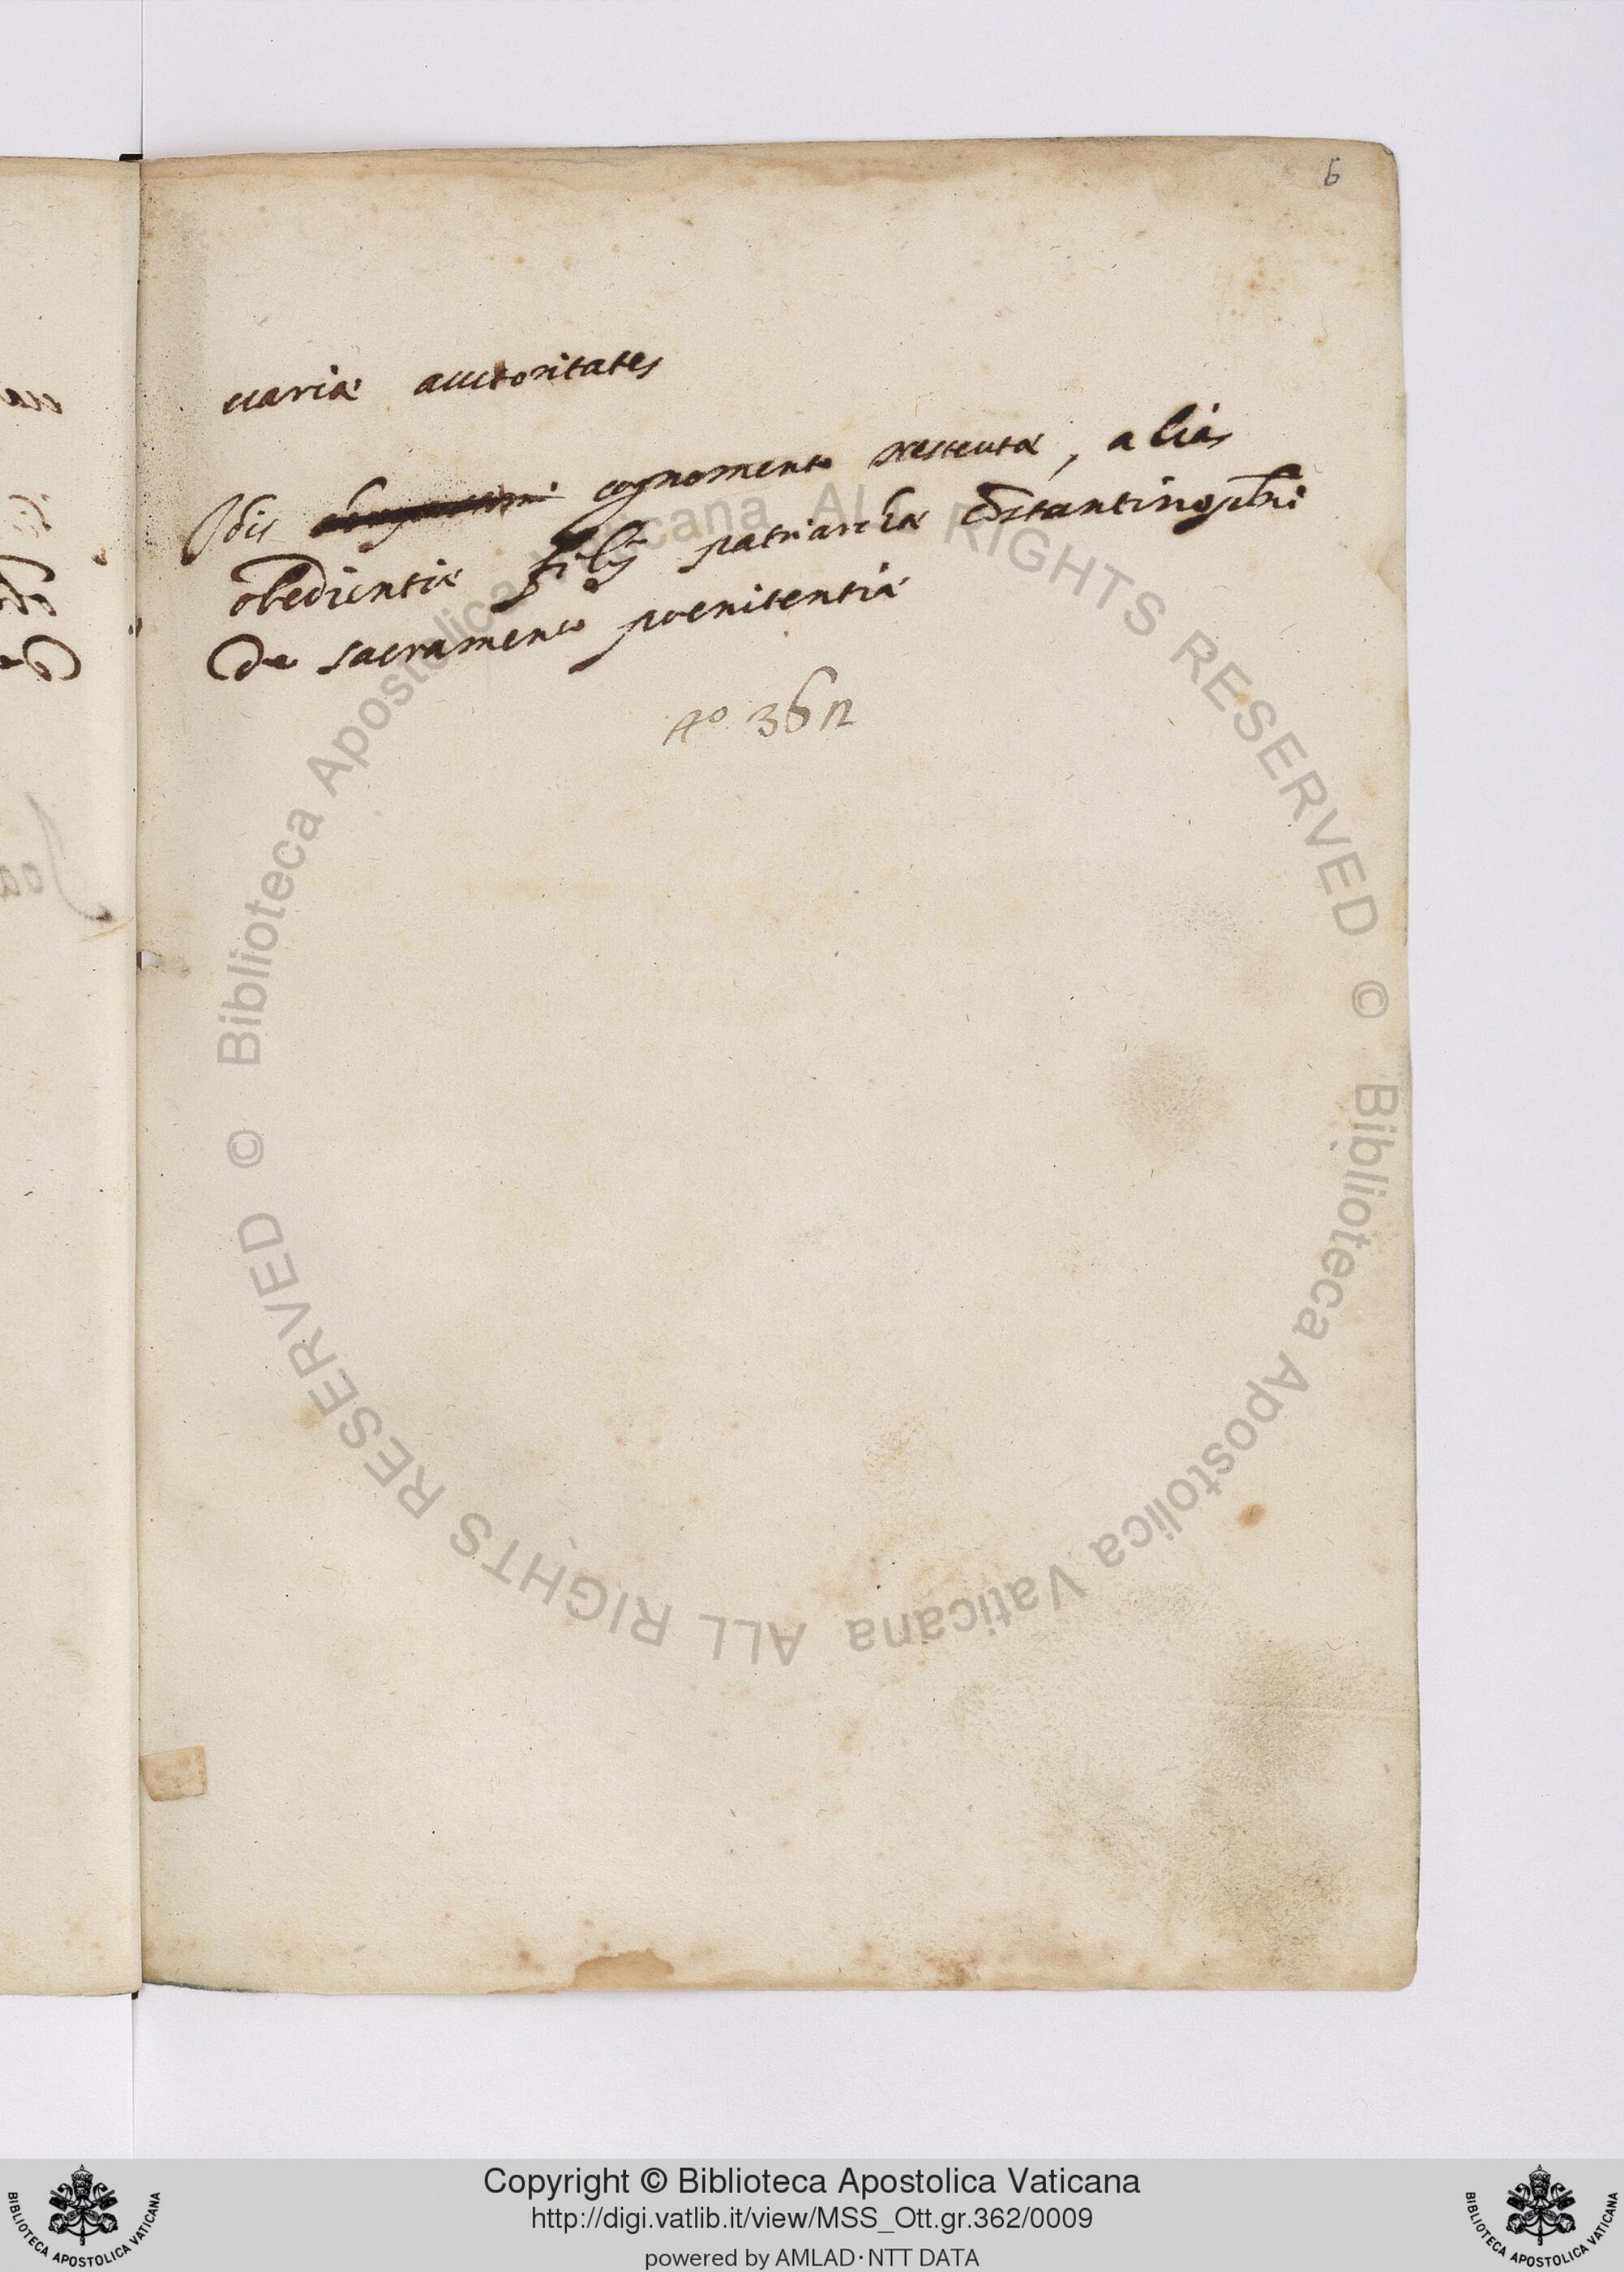 6
uariæ auctoritates
Jois cognomento nesteutæ, alias
obedientiæ filij patriarchæ Cōstantinoplni
De sacramento poenitentiæ
Ao 362
© Biblioteca Apostolica Vaticana ALL RIGHTS RESERVED
© Biblioteca Apostolica Vaticana ALL RIGHTS RESERVED
Copyright © Biblioteca Apostolica Vaticana
http://digi.vatlib.it/view/MSS_Ott.gr.362/0009
powered by AMLAD·NTT DATA
BIBLIOTECA APOSTOLICA VATICANA
BIBLIOTECA APOSTOLICA VATICANA